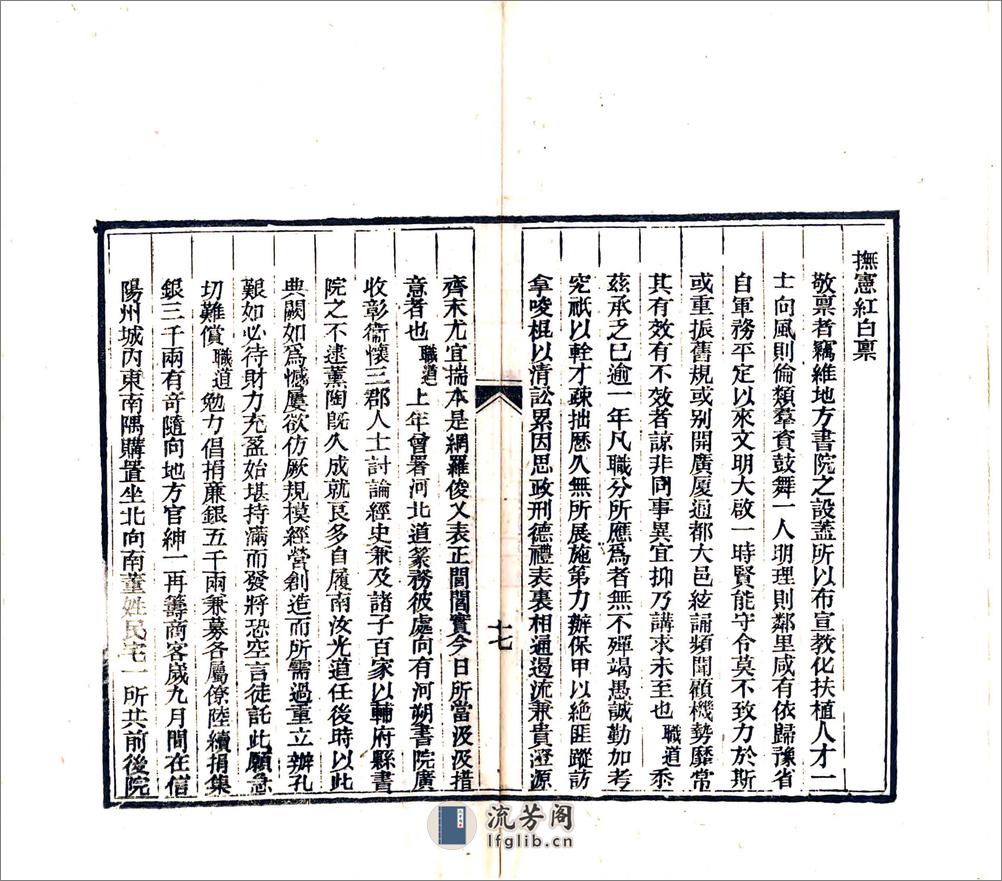 撫憲紅白禀
敬禀者竊維地方書院之設蓋所以布宣教化扶植人才一
士向風則倫類羣資鼓舞一人明理則鄰里咸有依歸豫省
自軍務平定以來文明大啟一時賢能守令莫不致力於斯
或重振舊規或别開廣厦通都大邑絃誦頻聞顧機勢靡常
其有效有不效者諒非同事異宜抑乃講求未至也職道忝
茲承乏已逾一年凡職分所應爲者無不殫竭愚誠勤加考
究祇以輇才疎拙歷久無所展施第力辦保甲以絶匪蹤訪
拿唆棍以清訟累因思政刑德禮表裏相通遏流兼貴澄源
十七
齊末尤宜揣本是網羅俊乂表正閭閻實今日所當汲汲措
意者也職道上年曾署河北道篆務彼處向有河朔書院廣
收彰衞懷三郡人士討論經史兼及諸子百家以輔府縣書
院之不逮薰陶旣久成就良多自履南汝光道任後時以此
典闕如爲憾屢欲仿厥規模經營創造而所需過重立辦孔
艱如必待財力充盈始堪持滿而發將恐空言徒託此願急
切難償職道勉力倡捐亷銀五千兩兼募各屬僚陸續捐集
銀三千兩有奇隨向地方官紳一再籌商客歲九月間在信
陽州城内東南隅購置坐北向南董姓民宅一所共前後院
流芳阁
lfglib.cn